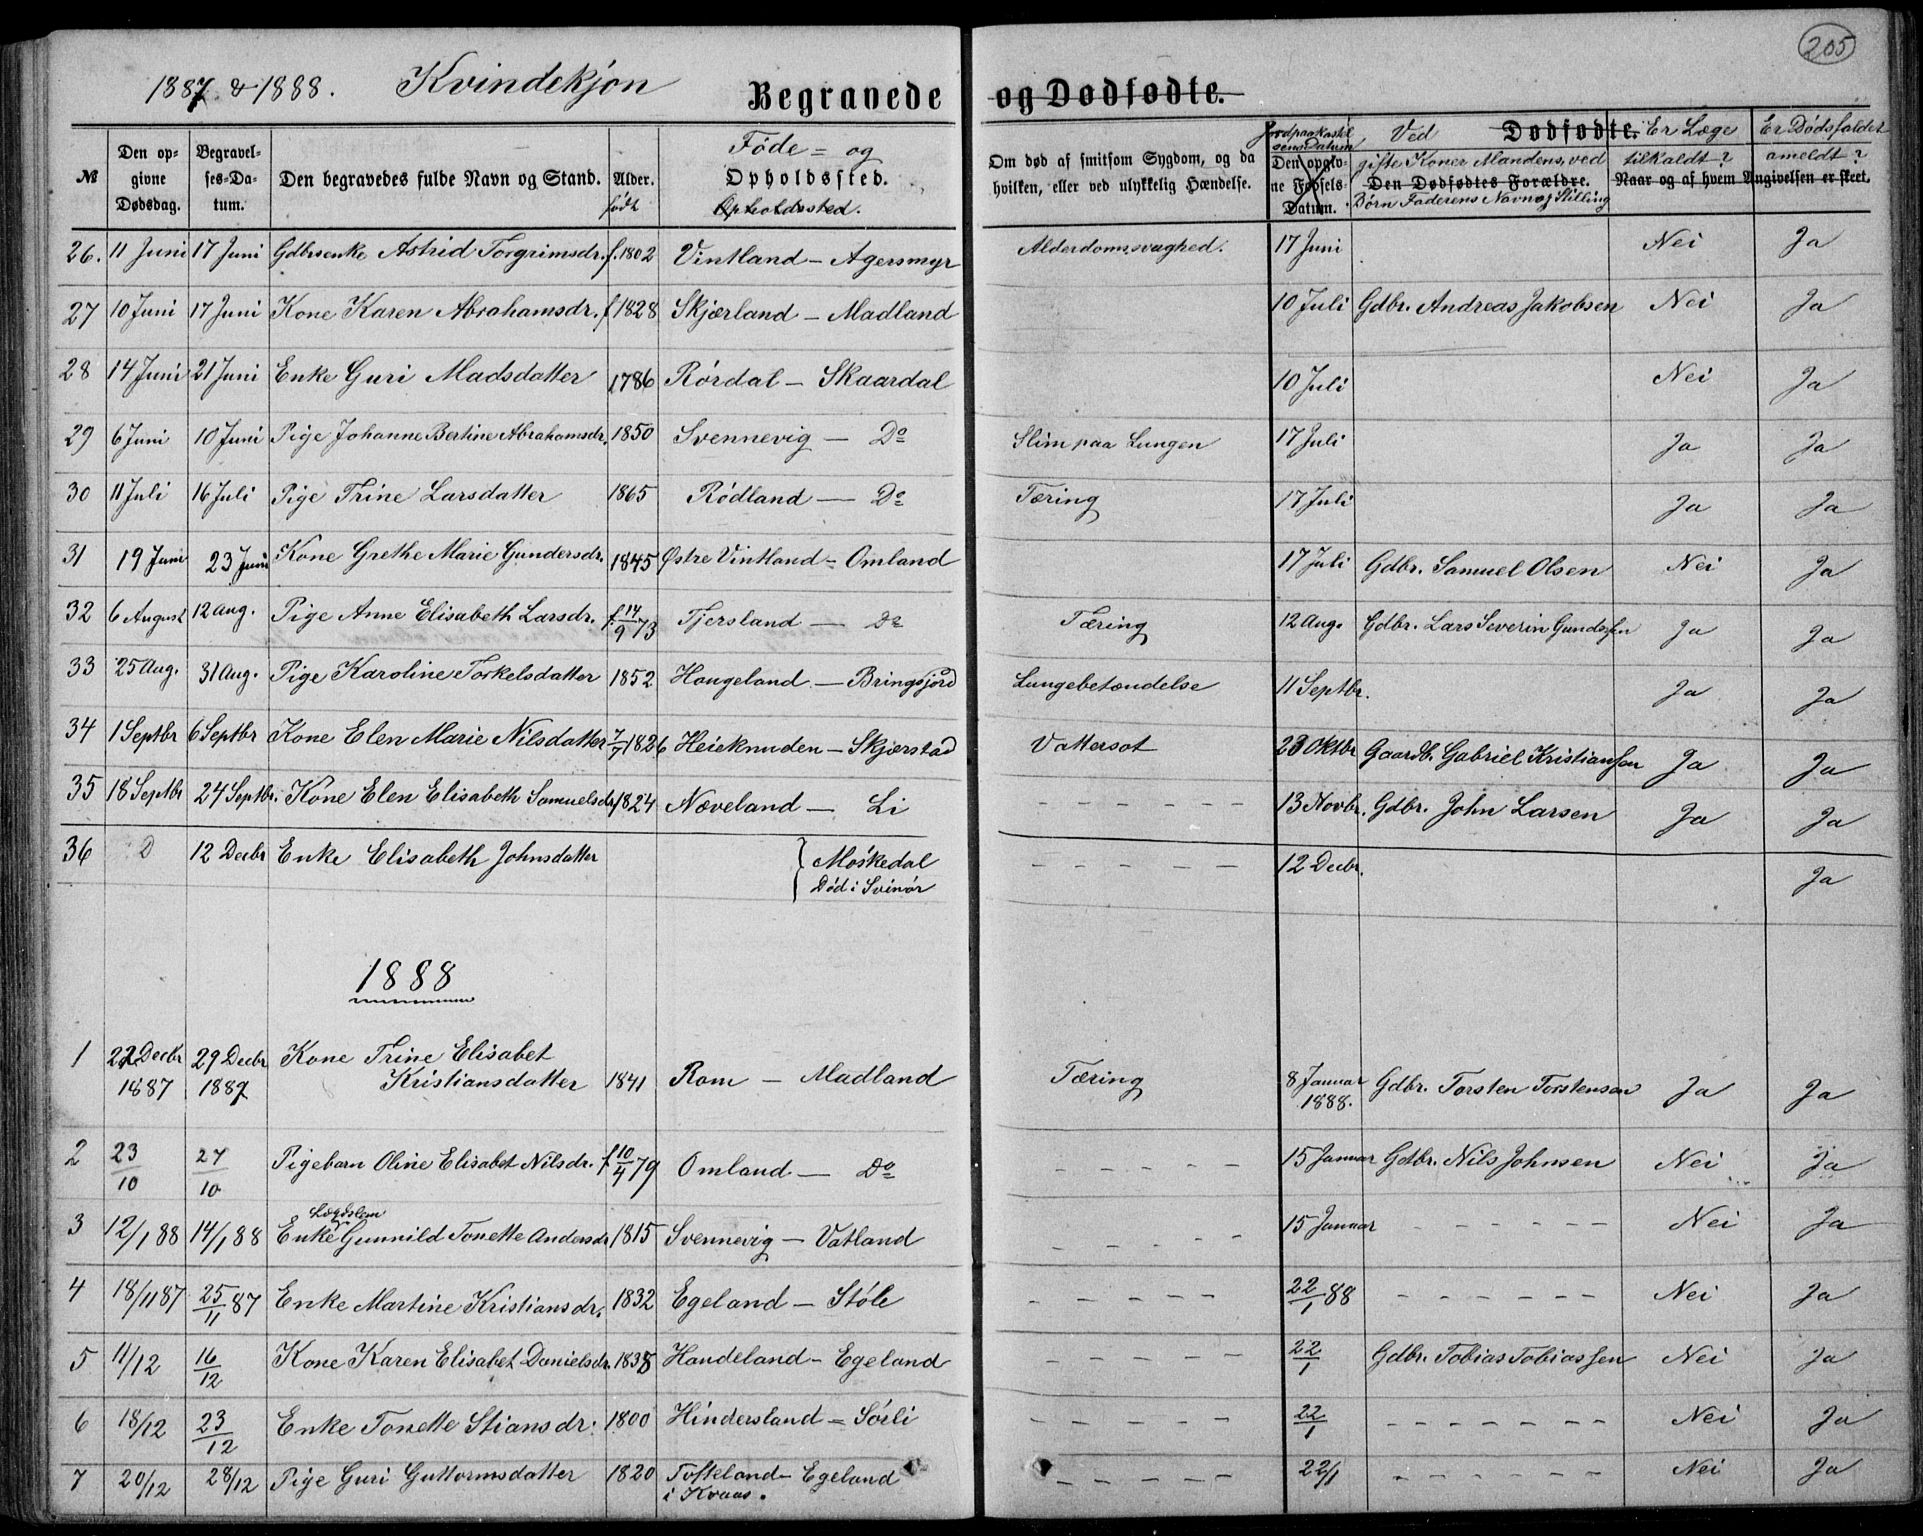 205
1887 & 1888. Kvindekjøn Begravede og Dødfødte.
№ Den opgivne Dødsdag. Begravelses-Datum. Den begravedes fulde Navn og Stand. Alder. født Føde= og Opholdssted. Opholdssted. Om død af smitsom Sygdom, og da hvilken, eller ved ulykkelig Hændelse. Jordpaakastelsens Datum Den opgivne Fødsels-Datum. Ved Dødfødte. gifte Koner Mandens, ved Den Dødfødtes Forældre. Børn Faderens Navn og Stilling Er Læge tilkaldt? Er Dødsfaldet anmeldt? Naar og af hvem Angivelsen er skeet.
26. 11 Juni 17 Juni Gdbrsenke Astrid Torgrimsdr. f. 1802 Vintland — Agersmyr Alderdomssvaghed. 17 Juni Nei Ja
27 10 Juni 17 Juni Kone Karen Abrahamsdr. f 1828 Skjærland — Madland 10 Juli Gdbr. Andreas Jakobsen Nei Ja
28 14 Juni 21 Juni Enke Guri Madsdatter 1786 Rørdal — Skaardal 10 Juli Nei Ja
29 6 Juni 10 Juni Pige Johanne Bertine Abrahamsdr. 1850 Svennevig — Do Slim paa Lungen 17 Juli Ja Ja
30 11 Juli 16 Juli Pige Trine Larsdatter 1865 Rødland — Do Tæring 17 Juli Ja Ja
31 19 Juni 23 Juni Kone Grethe Marie Gundersdr. 1845 Østre Vintland — Omland 17 Juli Gdbr. Samuel Olsen Nei Ja
32 6 August 12 Aug. Pige Anne Elisabeth Larsdr. f. 14/9 73 Tjersland — Do Tæring 12 Aug. Gdbr. Lars Severin Gundersen Ja Ja
33 25 Aug. 31 Aug. Pige Karoline Torkelsdatter 1852 Haugeland — Bringsjord Lungebetændelse 11 Septbr. Ja Ja
34 1 Septbr 6 Septbr Kone Elen Marie Nilsdatter 7/7 1826 Heieknuden — Skjerstad Vattersot 23 Oktbr Gaardb. Gabriel Kristiansen Ja Ja
35 18 Septbr 24 Septbr. Kone Elen Elisabeth Samuelsdr 1824 Næveland — Li - - - - - - 13 Novbr. Gdbr. John Larsen Ja Ja
36 D 12 Decbr Enke Elisabeth Johnsdatter Moskedal Død i Svinør - - - - - - 12 Decbr. Ja
1888
1 22 Decbr 1887 29 Decbr 1887 Kone Trine Elisabet Kristiansdatter 1841 Rom — Madland Tæring 8 Januar 1888. Gdbr. Torsten Torstensen Ja Ja
2 23/10 27/10 Pigebarn Oline Elisabet Nilsdr. f 10/4 79 Omland — Do - - - - - 15 Januar Gdbr. Nils Johnsen Nei Ja
3 12/1 88 14/1 88 Enke Lægdslem Gunnild Tonette Andersdr 1815 Svennevig — Vatland - - - - - 15 Januar - - - - - Nei Ja
4 18/11 87 25/11 87 Enke Martine Kristiansdr. 1832 Egeland — Støle - - - - - 22/1 88 - - - - - Nei Ja
5 11/12 16/12 Kone Karen Elisabet Danielsdr. 1838 Haudeland — Egeland - - - - - 22/1 Gdbr. Tobias Tobiassen Nei Ja
6 18/12 23/12 Enke Tonette Stiansdr. 1800 Hindersland — Sørli - - - - - 22/1 - - - - - - Nei Ja
7 20/12 28/12 Pige Guri Guttormsdatter 1820 Toftland i Kvaas. — Egeland - - - - - 22/1 - - - - - - Nei Ja